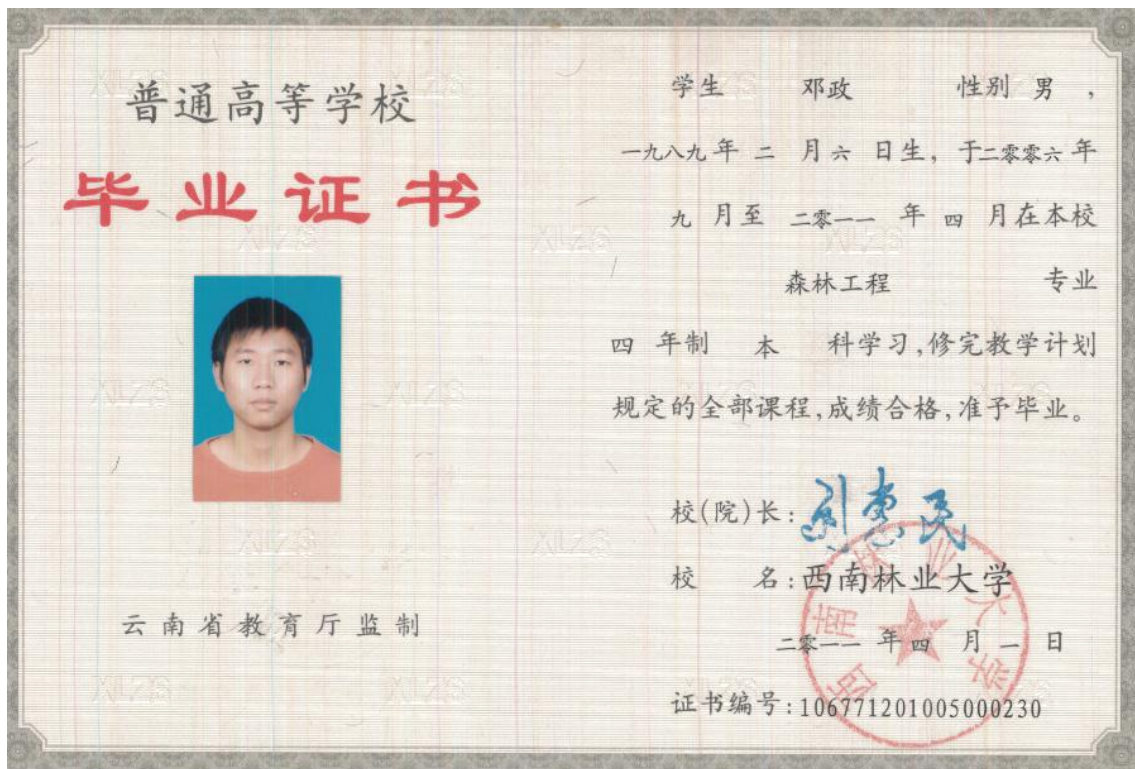 普通高等学校
毕业证书
云南省教育厅监制
学生 邓政 性别 男 ,
一九八九年 二 月 六 日生, 于二零零六年
九 月至 二零一一 年 四 月在本校
森林工程 专业
四 年制 本 科学习,修完教学计划
规定的全部课程,成绩合格,准予毕业。
校(院)长: 刘惠民
校 名:西南林业大学
二零一一 年 四 月 一 日
证书编号:106771201005000230
西南林业大学
XLZS